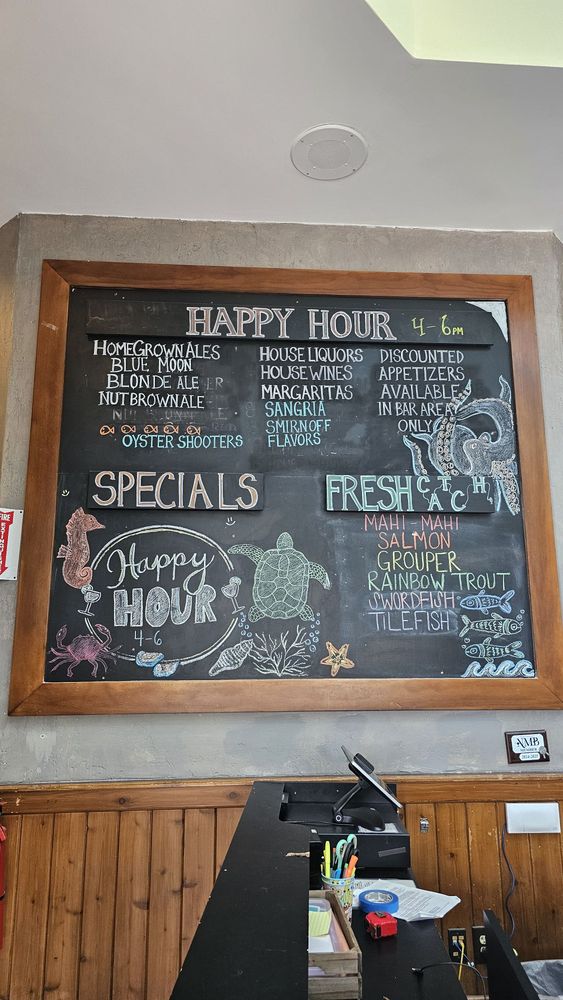 HAPPY HOUR 4-6PM
HOMEGROWN ALES
BLUE MOON
BLONDE ALE
NUT BROWN ALE
OYSTER SHOOTERS
HOUSE LIQUORS
HOUSE WINES
MARGARITAS
SANGRIA
SMIRNOFF
FLAVORS
DISCOUNTED
APPETIZERS
AVAILABLE
IN BAR AREA
ONLY
SPECIALS
Happy
HOUR
4-6
FRESH CATCH
MAHI-MAHI
SALMON
GROUPER
RAINBOW TROUT
SWORDFISH
TILEFISH
FIRE
NMB